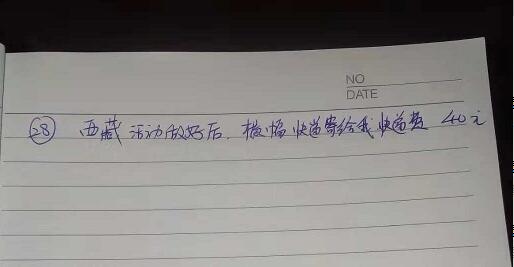 NO
DATE
㉘ 西藏活动做好后. 横幅快递寄给我快递费 40元